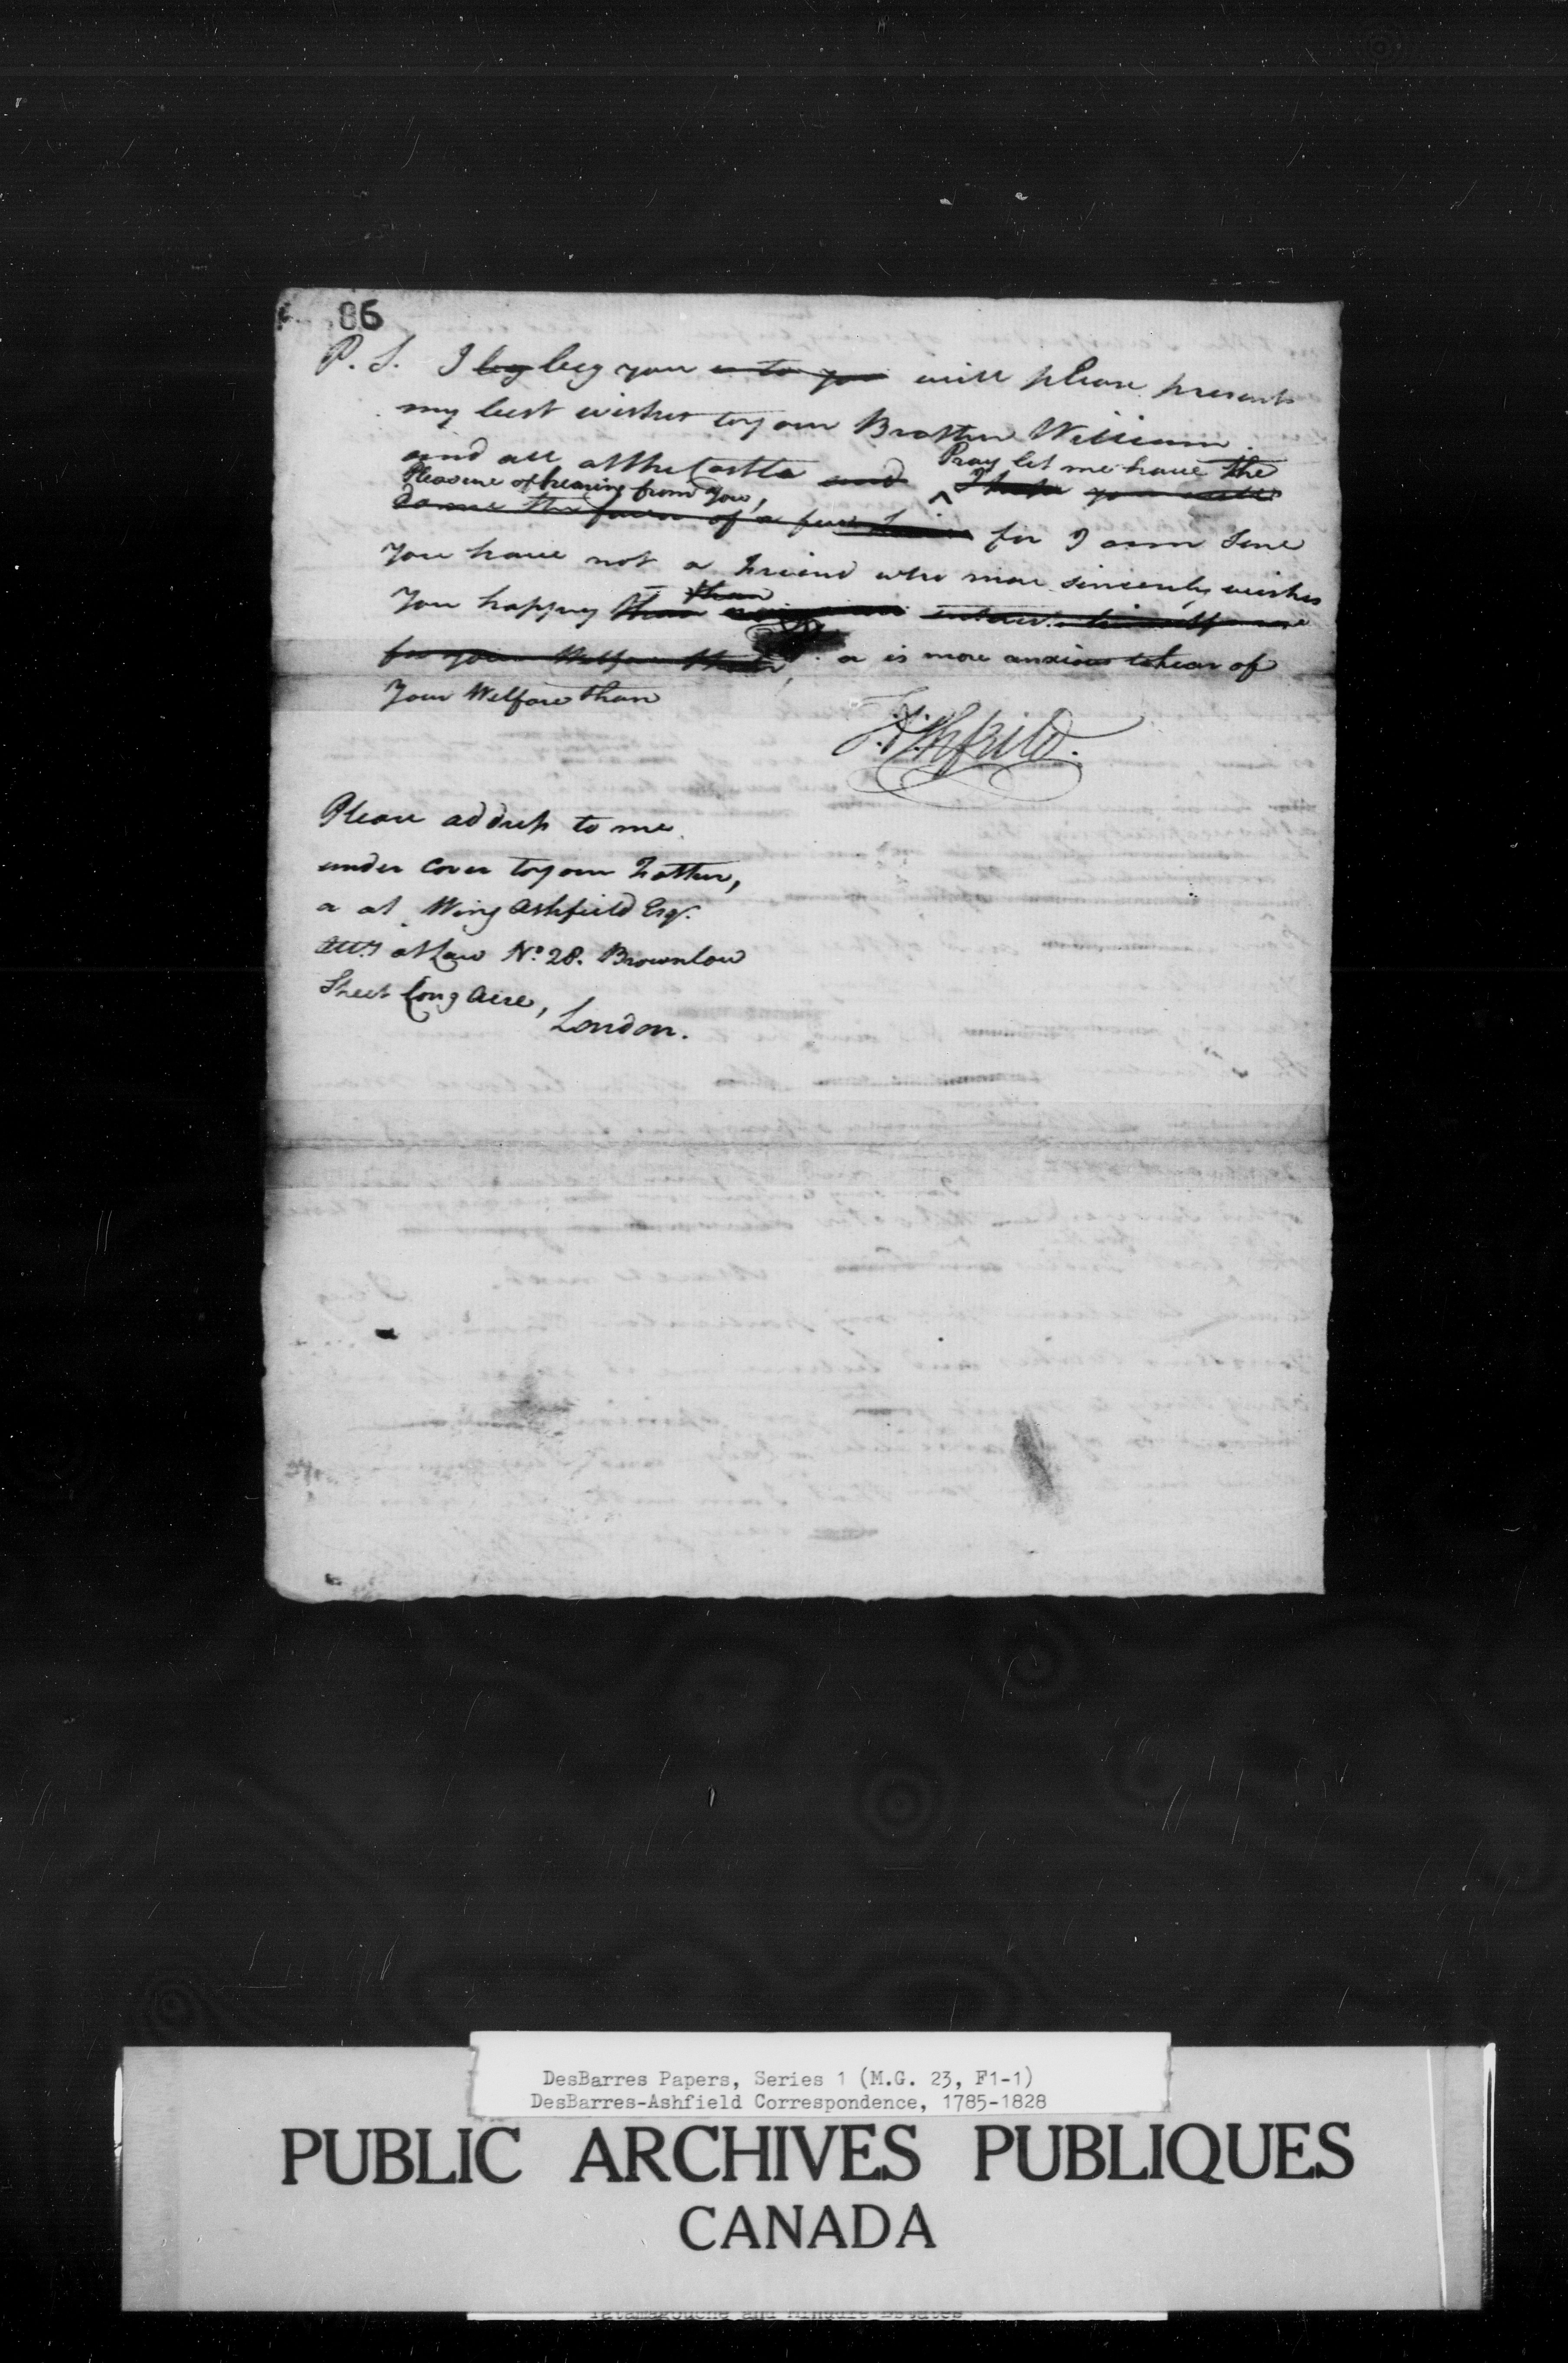 86
P. S. I beg beg you is to you will please present
my best wishes to your Brother William
and all at the Castle and Pray let me have the
I hope you will
Pleasure of hearing from you,
do me the favor of a few for I am Sure
You have not a Friend who more sincerely wishes
You happy than than
for your Welfare than, or is more anxious to hear of
Your Welfare than
Ashfield.
Please address to me
under Cover to your Father,
or at Wing Ashfield Esqr.
Atty at Law No. 28. Brownlow
Street Long Acre,
London.
DesBarres Papers, Series 1 (M.G. 23, F1-1)
DesBarres-Ashfield Correspondence, 1785-1828
PUBLIC ARCHIVES PUBLIQUES
CANADA